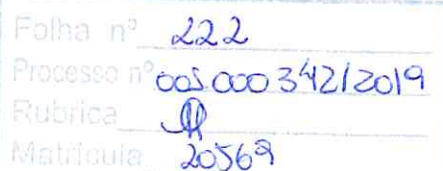 Folha nº 222
Processo nº 005 000 342/2019
Rubrica
Matrícula 20569